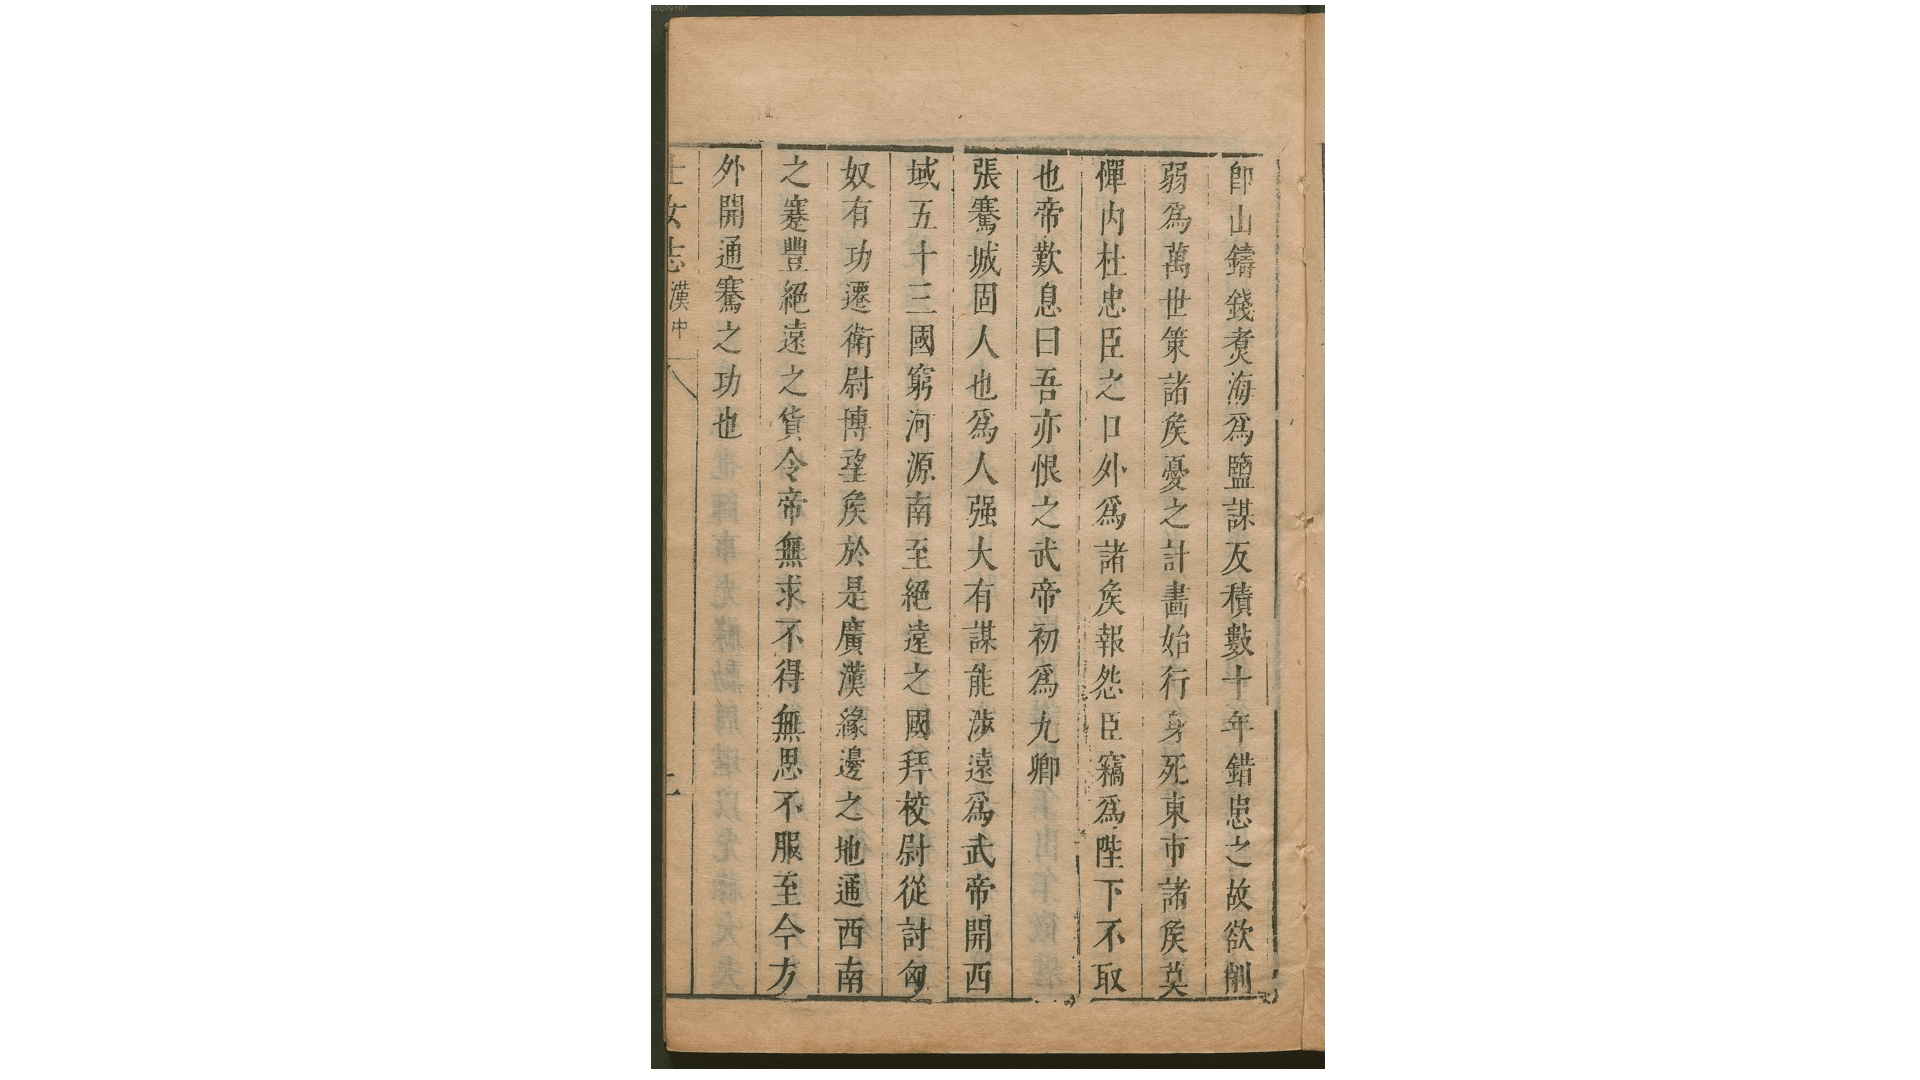 卽山鑄錢煑海爲鹽謀反積數十年錯患之故欲削
弱爲萬世策諸矦憂之計畫始行身死東市諸矦莫
憚内杜忠臣之口外爲諸矦報怨臣竊爲陛下不取
也帝歎息曰吾亦恨之武帝初爲九卿
張騫城固人也爲人强大有謀能涉遠爲武帝開西
域五十三國窮河源南至絕遠之國拜校尉從討匈
奴有功遷衛尉博望矦於是廣漢緣邊之地通西南
之蹇豐絕遠之貨令帝無求不得無思不服至今方
外開通騫之功也
士女志 漢中